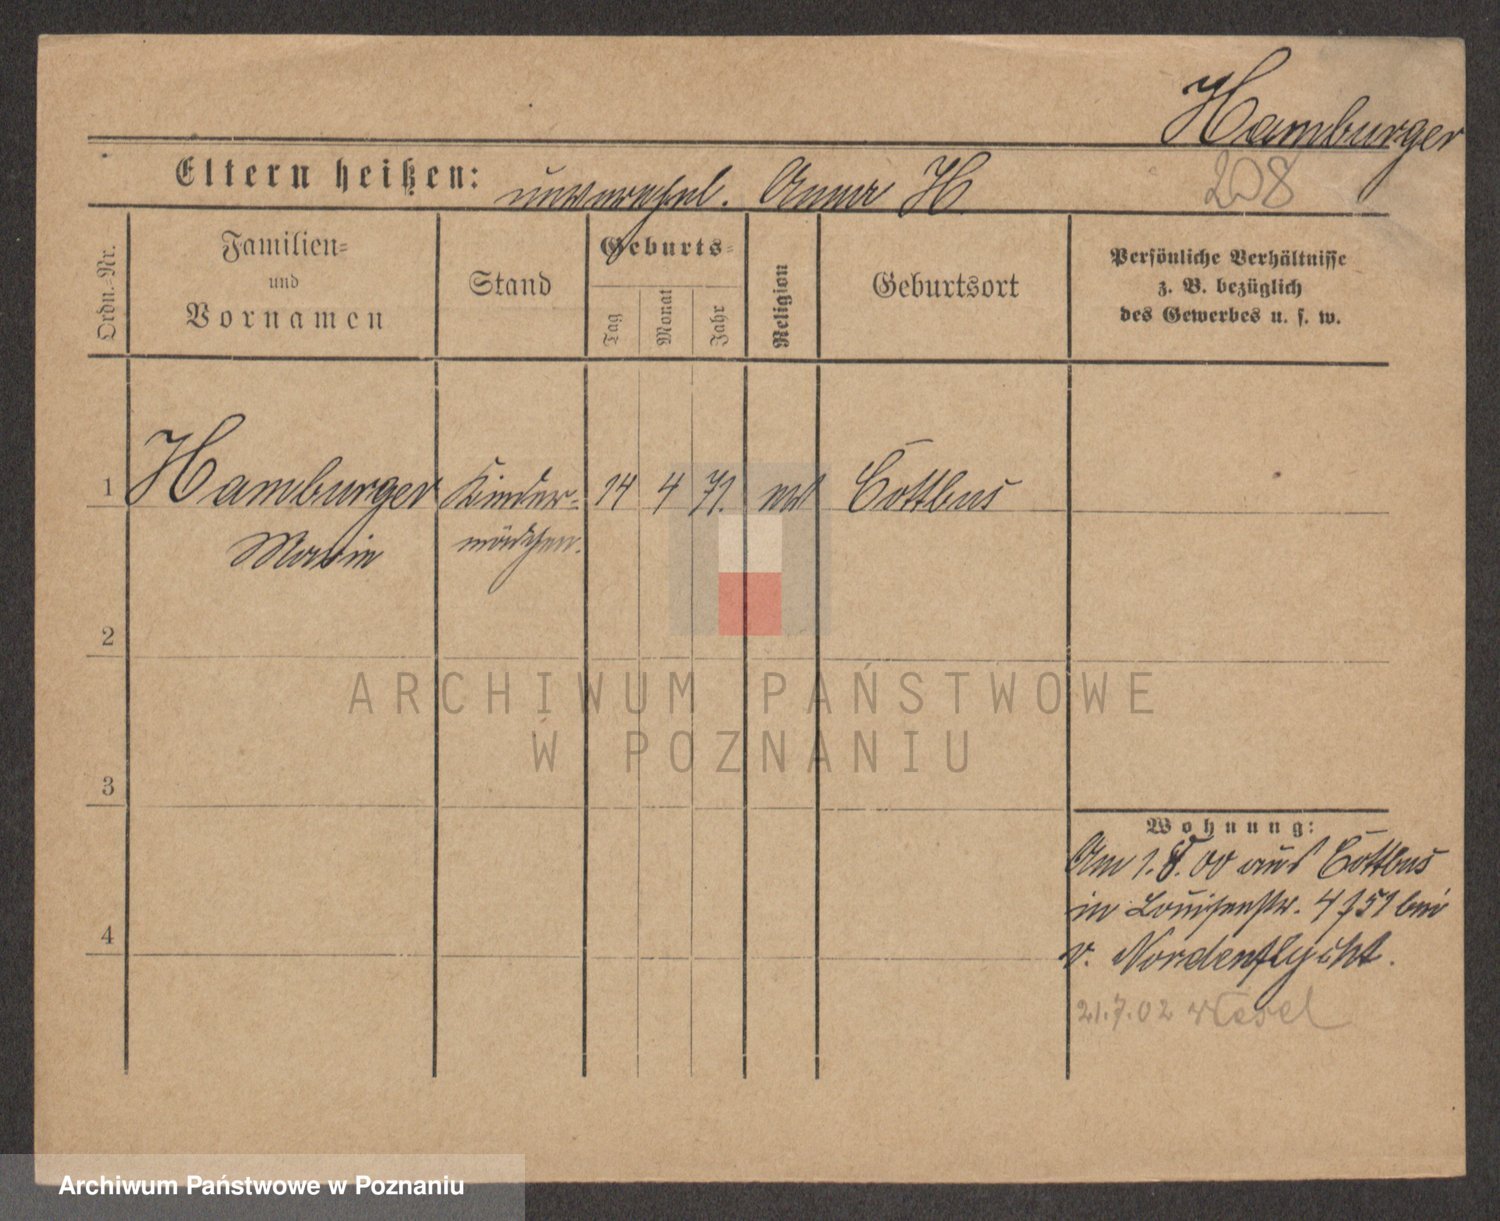 Hamburger
208
Eltern heißen: unverehel. Anna H.
Ordn.-Nr.
Familien-
und
Vornamen
Stand
Geburts-
Tag
Monat
Jahr
Religion
Geburtsort
Persönliche Verhältnisse
z. B. bezüglich
des Gewerbes u. s. w.
1 Hamburger Kinder- 14 4 71. Cottbus
Marie mädchen.
2
ARCHIWUM PAŃSTWOWE
W POZNANIU
3
Wohnung:
Am 1. 8. 00 aus Cottbus
in Louisenstr. bei
4
v. Nordenflycht.
21.7.02 Wesel
Archiwum Państwowe w Poznaniu